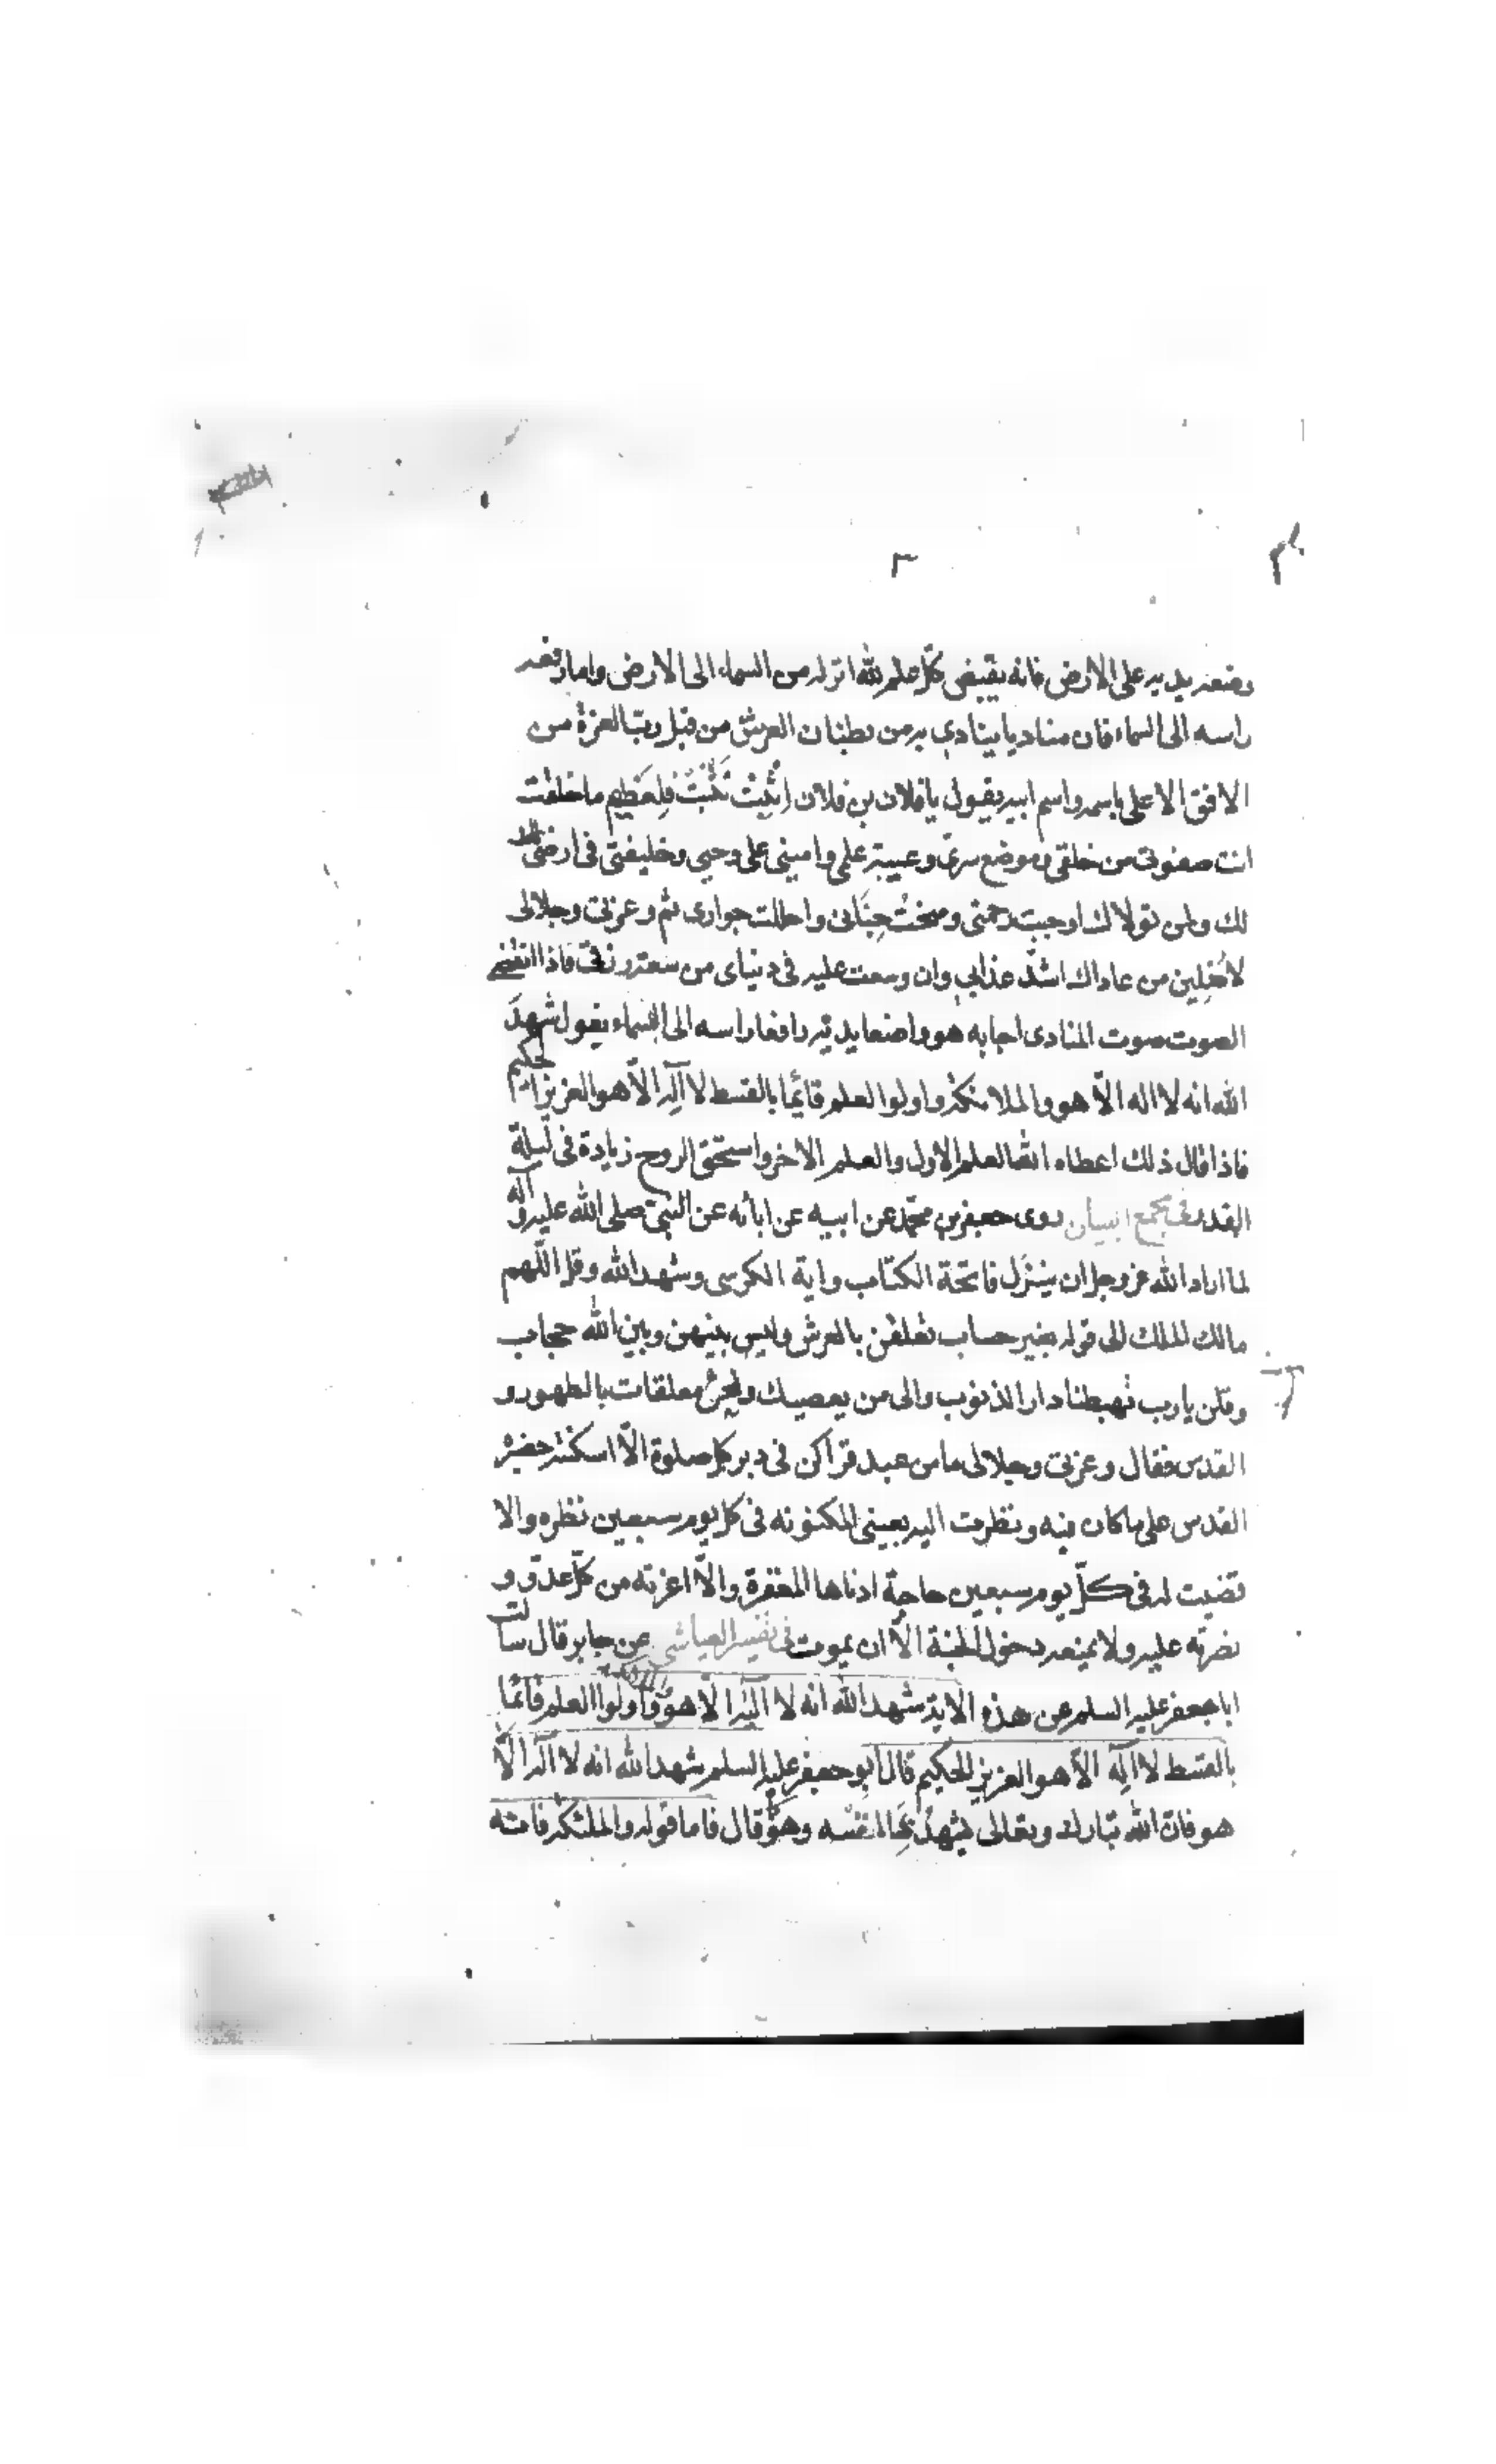 ٣
وضعه يديه على الارض فانه يقبض كلّ علم لله انزله من السماء الى الارض واما رفعه
راسه الى السماء فان مناديا ينادي به من بطنان العرش من قبل ربّ العزة من
الافق الاعلى باسمه واسم ابيه يقول يا فلان بن فلان اثبت تثبت فلعظيم ما خلقت
انت صفوتى من خلقى وموضع سرى وعيبة علمى وامينى على وحيى وخليفتى فى ارضى
لك ولمن تولاك اوجبت رحمتى ومنحت جِنَانى واحللت جوارى ثم وعزتى وجلالى
لاصلين من عاداك اشدّ عذابي وان وسعت عليه فى دنياى من سعة رزقى فاذا انقضى
الصوت صوت المنادى اجابه هو واضعا يديه رافعا راسه الى السماء يقول شهدَ
الله انه لا اله الّا هو والملائكة واولوا العلم قائمًا بالقسط لا آله الّا هو العزيز الحكيم
فاذا قال ذلك اعطاه الله العلم الاول والعلم الاخر واستحق الروح زيادة فى ليلة
القدر فى مجمع البيان روى جعفر بن محمّد عن ابيه عن ابائه عن النبىّ صلى الله عليه وآله
لما اراد الله عز وجل ان ينزل فاتحة الكتاب واية الكرسى وشهد الله وقل اللّهم
مالك الملك الى قوله بغير حساب تعلقن بالعرش وليس بينهن وبين الله حجاب
وقلن يا رب تهبطنا دار الذنوب والى من يعصيك ونحن معلقات بالطهور و
القدس فقال وعزتى وجلالى ما من عبد قراكن فى دبر كل صلوة الّا اسكنته حضيرة
القدس على ما كان فيه ونظرت اليه بعينى المكنونه فى كل يوم سبعين نظره والا
قضيت له فى كلّ يوم سبعين حاجة ادناها المغفرة والّا اعزته من كلّ عدوّ و
نصرته عليه ولا يمنعه دخول الجنة الّا ان يموت فى تفسير العياشى عن جابر قال سالت
ابا جعفر عليه السلم عن هذه الاية شهد الله انه لا آله الّا هو والملائكة واولوا العلم قائمًا
بالقسط لا آله الّا هو العزيز الحكيم قال ابو جعفر عليه السلم شهد الله انه لا آله الّا
هو فانّ الله تبارك وتعالى يشهد بها لنفسه وهو قال فاما قوله والملئكة فانه